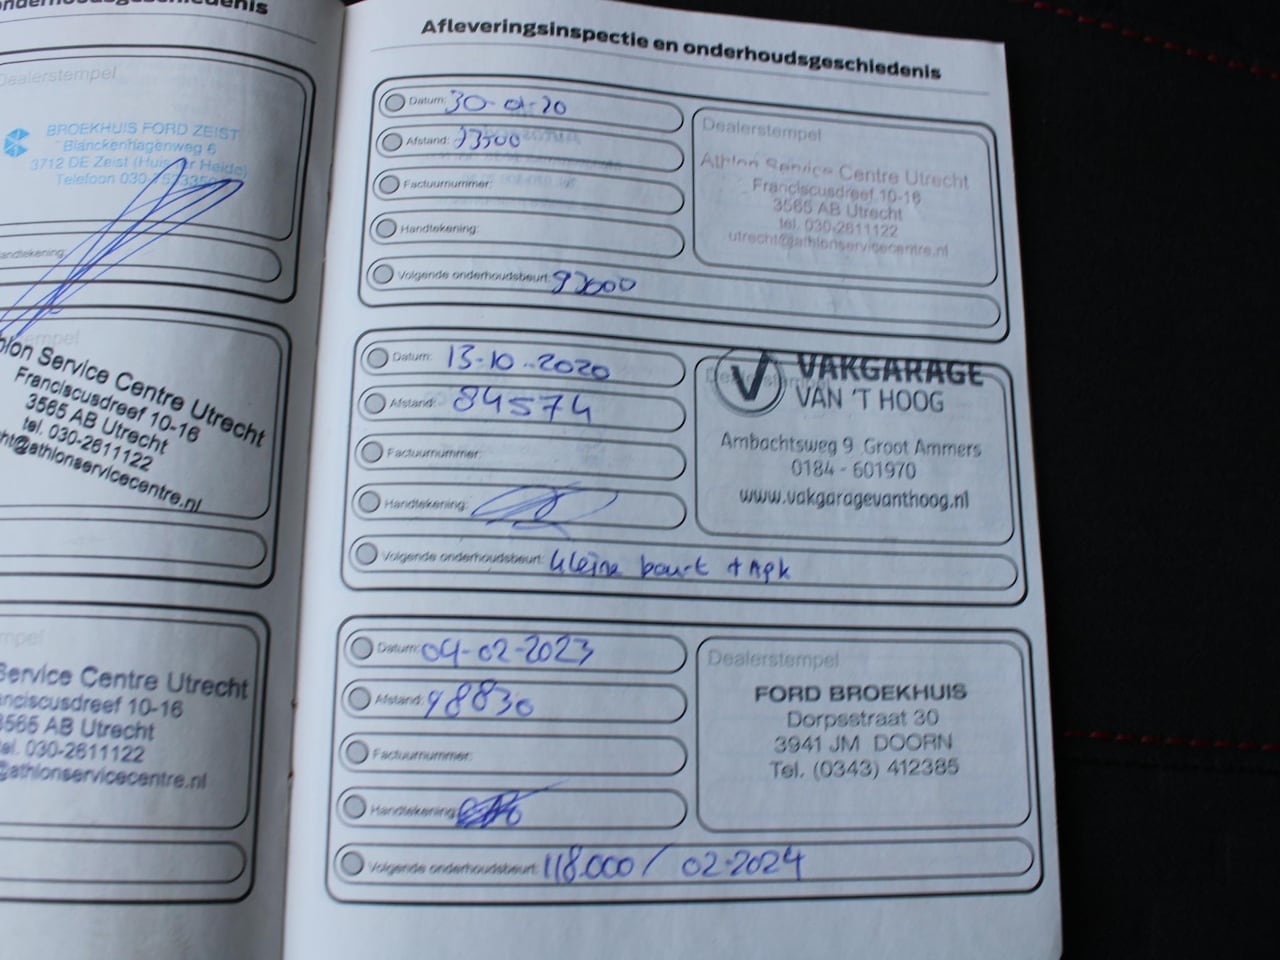 onderhoudsgeschiedenis
Dealerstempel
BROEKHUIS FORD ZEIST
Blanckenhagenweg 6
3712 DE Zeist (Huis ter Heide)
Telefoon 030-
Handtekening:
Dealerstempel
Athlon Service Centre Utrecht
Franciscusdreef 10-16
3565 AB Utrecht
tel. 030-2611122
utrecht@athlonservicecentre.nl
Dealerstempel
Service Centre Utrecht
Franciscusdreef 10-16
3565 AB Utrecht
tel. 030-2611122
@athlonservicecentre.nl
Afleveringsinspectie en onderhoudsgeschiedenis
Datum: 30-01-20
Afstand: 73500
Factuurnummer:
Handtekening:
Volgende onderhoudsbeurt: 93000
Dealerstempel
Athlon Service Centre Utrecht
Franciscusdreef 10-16
3565 AB Utrecht
tel. 030-2611122
utrecht@athlonservicecentre.nl
Datum: 13-10-2020
Afstand: 84574
Factuurnummer:
Handtekening:
Volgende onderhoudsbeurt: kleine beurt + Apk
Dealerstempel
VAKGARAGE
VAN 'T HOOG
Ambachtsweg 9 Groot Ammers
0184 - 601970
www.vakgaragevanthoog.nl
Datum: 09-02-2023
Afstand: 98830
Factuurnummer:
Handtekening:
Volgende onderhoudsbeurt: 118.000 / 02-2024
Dealerstempel
FORD BROEKHUIS
Dorpsstraat 30
3941 JM DOORN
Tel. (0343) 412385